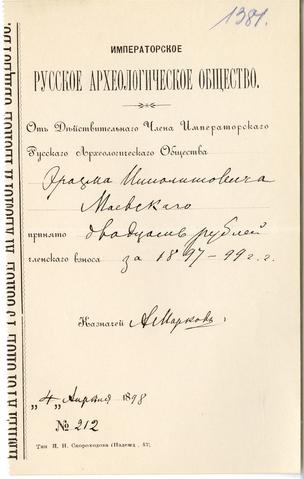 1381.
ИМПЕРАТОРСКОЕ
РУССКОЕ АРХЕОЛОГИЧЕСКОЕ ОБЩЕСТВО.
Отъ Дѣйствительнаго Члена Императорскаго
Русскаго Археологическаго Общества
Эразма Ипполитовича
Маевскаго
принято двадцать рублей
членскаго взноса за 1897–99 г.г.
Казначей А Марковъ
„4„ Апрѣля 1898
№ 212
Тип И. Н. Скороходова (Надежд., 43)